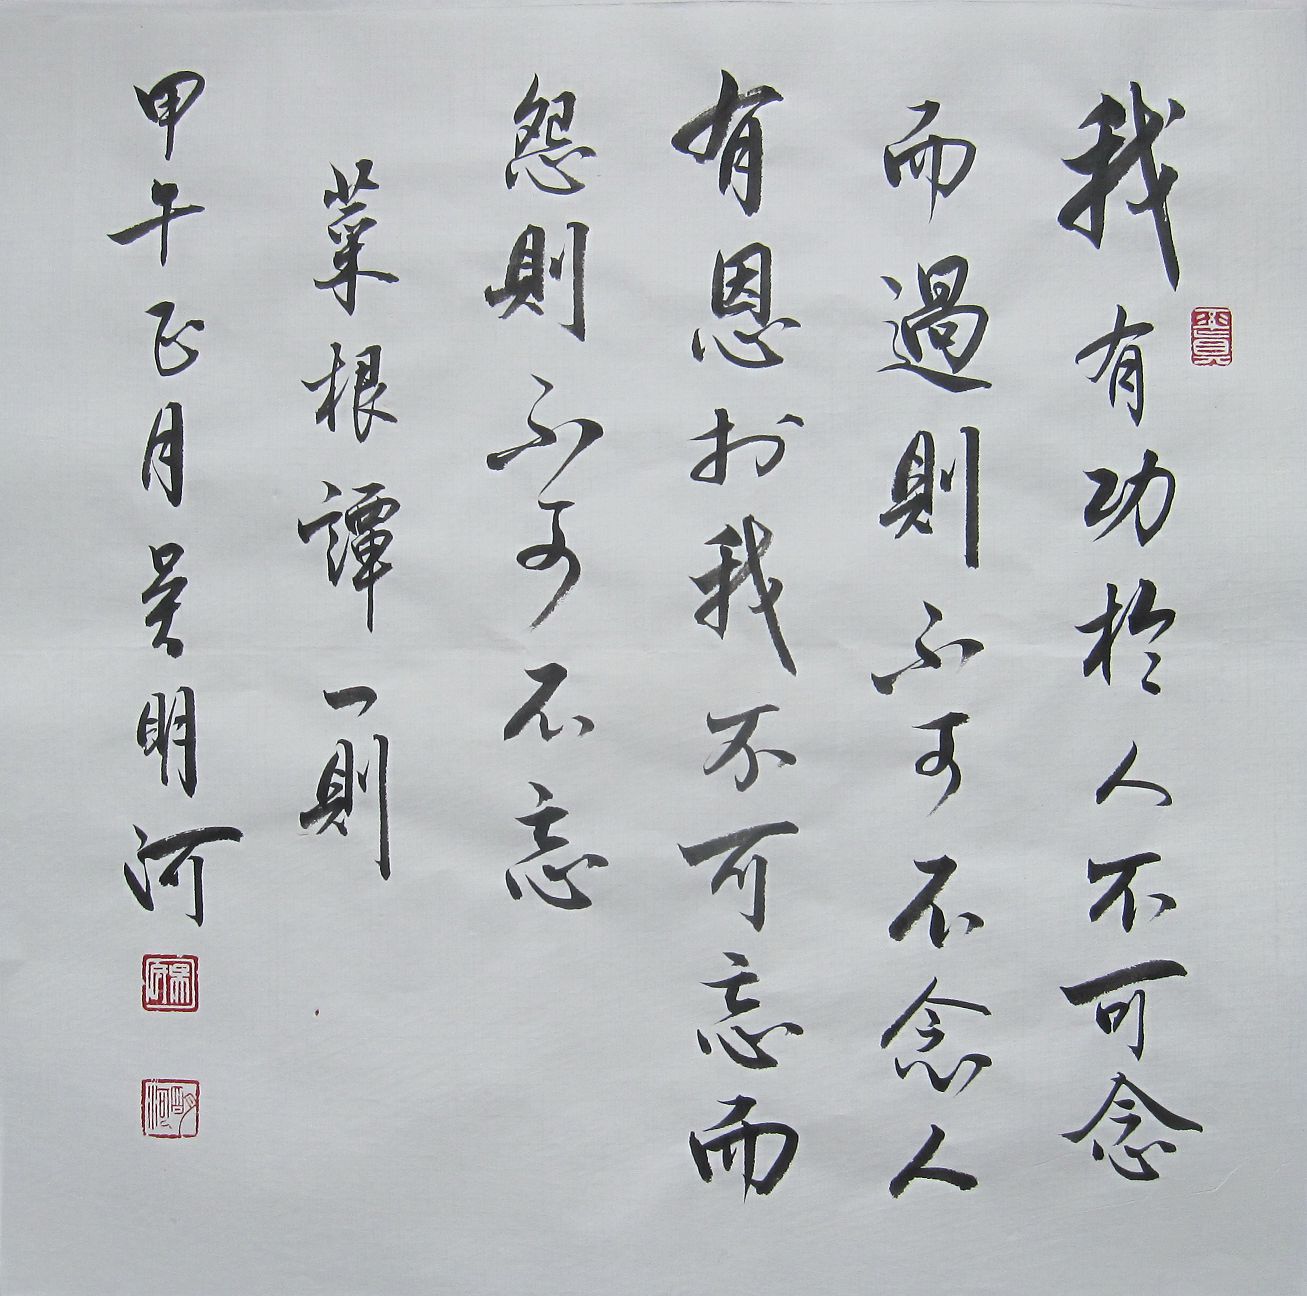 我有功於人不可念
而過則不可不念人
有恩於我不可忘而
怨則不可不忘
菜根譚一則
甲午正月吴明河